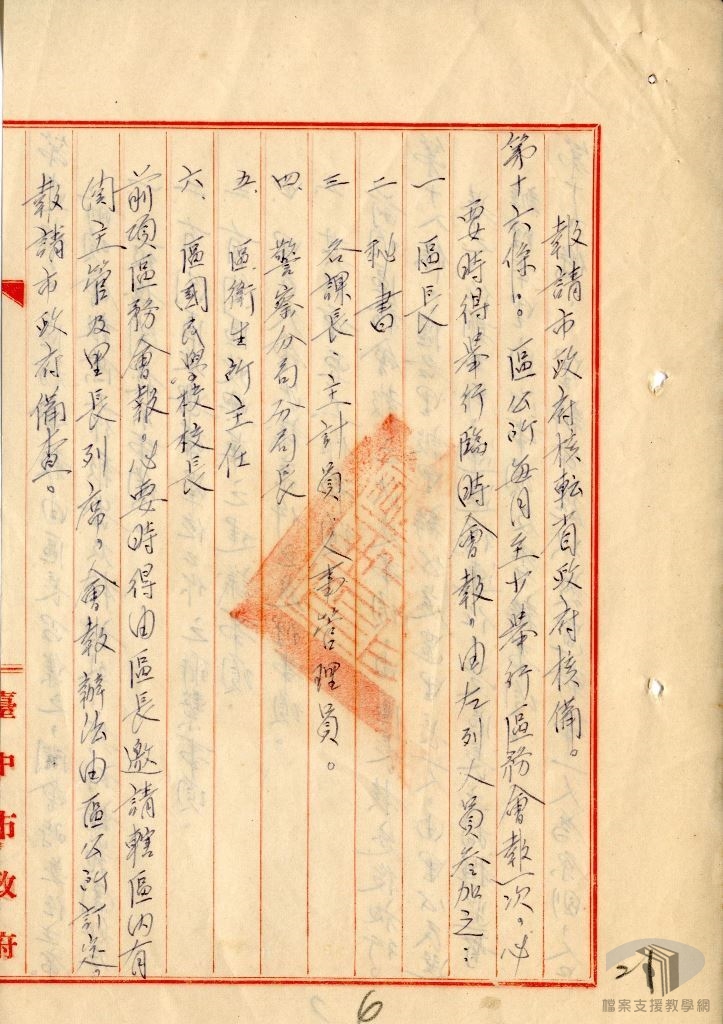 報請市政府核転省政府核備。
第十六條：區公所每月至少舉行區務會報一次，必
要時得舉行臨時會報，由左列人員參加之：
一 區長
二 秘書
三 各課長、主計員、人事管理員。
四 警察分局分局長
五 區衛生所主任
六、區國民學校校長
前項區務會報，必要時得由區長邀請轄區內有
関主管及里長列席，會報辦法由區公所訂定。
報請市政府備查。
臺中市政府
6
21
檔案支援教學網